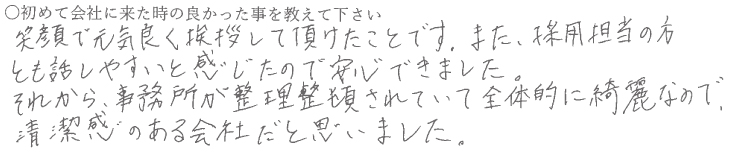 ○初めて会社に来た時の良かった事を教えて下さい
笑顔で元気良く挨拶して頂けたことです。また、採用担当の方
とも話しやすいと感じたので安心できました。
それから、事務所が整理整頓されていて全体的に綺麗なので、
清潔感のある会社だと思いました。